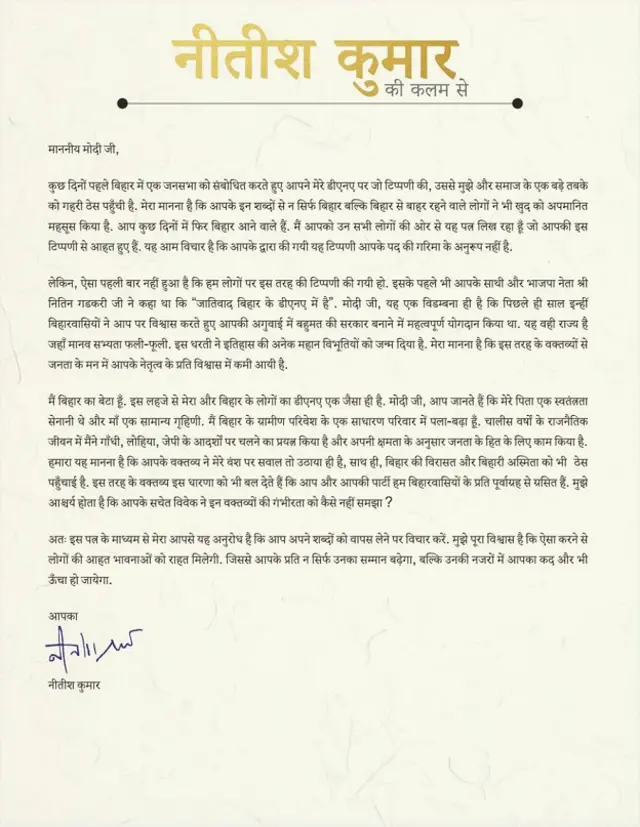 नीतीश कुमार
की कलम से
माननीय मोदी जी,
कुछ दिनों पहले बिहार में एक जनसभा को संबोधित करते हुए आपने मेरे डीएनए पर जो टिप्पणी की, उससे मुझे और समाज के एक बड़े तबके
को गहरी ठेस पहुँची है. मेरा मानना है कि आपके इन शब्दों से न सिर्फ बिहार बल्कि बिहार से बाहर रहने वाले लोगों ने भी खुद को अपमानित
महसूस किया है. आप कुछ दिनों में फिर बिहार आने वाले हैं. मैं आपको उन सभी लोगों की ओर से यह पत्र लिख रहा हूँ जो आपकी इस
टिप्पणी से आहत हुए हैं. यह आम विचार है कि आपके द्वारा की गयी यह टिप्पणी आपके पद की गरिमा के अनुरूप नहीं है.
लेकिन, ऐसा पहली बार नहीं हुआ है कि हम लोगों पर इस तरह की टिप्पणी की गयी हो. इसके पहले भी आपके साथी और भाजपा नेता श्री
नितिन गडकरी जी ने कहा था कि “जातिवाद बिहार के डीएनए में है”. मोदी जी, यह एक विडम्बना ही है कि पिछले ही साल इन्हीं
बिहारवासियों ने आप पर विश्वास करते हुए आपकी अगुवाई में बहुमत की सरकार बनाने में महत्वपूर्ण योगदान किया था. यह वही राज्य है
जहाँ मानव सभ्यता फली-फूली. इस धरती ने इतिहास की अनेक महान विभूतियों को जन्म दिया है. मेरा मानना है कि इस तरह के वक्तव्यों से
जनता के मन में आपके नेतृत्व के प्रति विश्वास में कमी आयी है.
मैं बिहार का बेटा हूँ. इस लहजे से मेरा और बिहार के लोगों का डीएनए एक जैसा ही है. मोदी जी, आप जानते हैं कि मेरे पिता एक स्वतंत्रता
सेनानी थे और माँ एक सामान्य गृहिणी. मैं बिहार के ग्रामीण परिवेश के एक साधारण परिवार में पला-बढ़ा हूँ. चालीस वर्षों के राजनैतिक
जीवन में मैंने गाँधी, लोहिया, जेपी के आदर्शों पर चलने का प्रयत्न किया है और अपनी क्षमता के अनुसार जनता के हित के लिए काम किया है.
हमारा यह मानना है कि आपके वक्तव्य ने मेरे वंश पर सवाल तो उठाया ही है, साथ ही, बिहार की विरासत और बिहारी अस्मिता को भी ठेस
पहुँचाई है. इस तरह के वक्तव्य इस धारणा को भी बल देते हैं कि आप और आपकी पार्टी हम बिहारवासियों के प्रति पूर्वाग्रह से ग्रसित हैं. मुझे
आश्चर्य होता है कि आपके सचेत विवेक ने इन वक्तव्यों की गंभीरता को कैसे नहीं समझा ?
अतः इस पत्र के माध्यम से मेरा आपसे यह अनुरोध है कि आप अपने शब्दों को वापस लेने पर विचार करें. मुझे पूरा विश्वास है कि ऐसा करने से
लोगों की आहत भावनाओं को राहत मिलेगी. जिससे आपके प्रति न सिर्फ उनका सम्मान बढ़ेगा, बल्कि उनकी नजरों में आपका कद और भी
ऊँचा हो जायेगा.
आपका
नीतीश कुमार
नीतीश कुमार